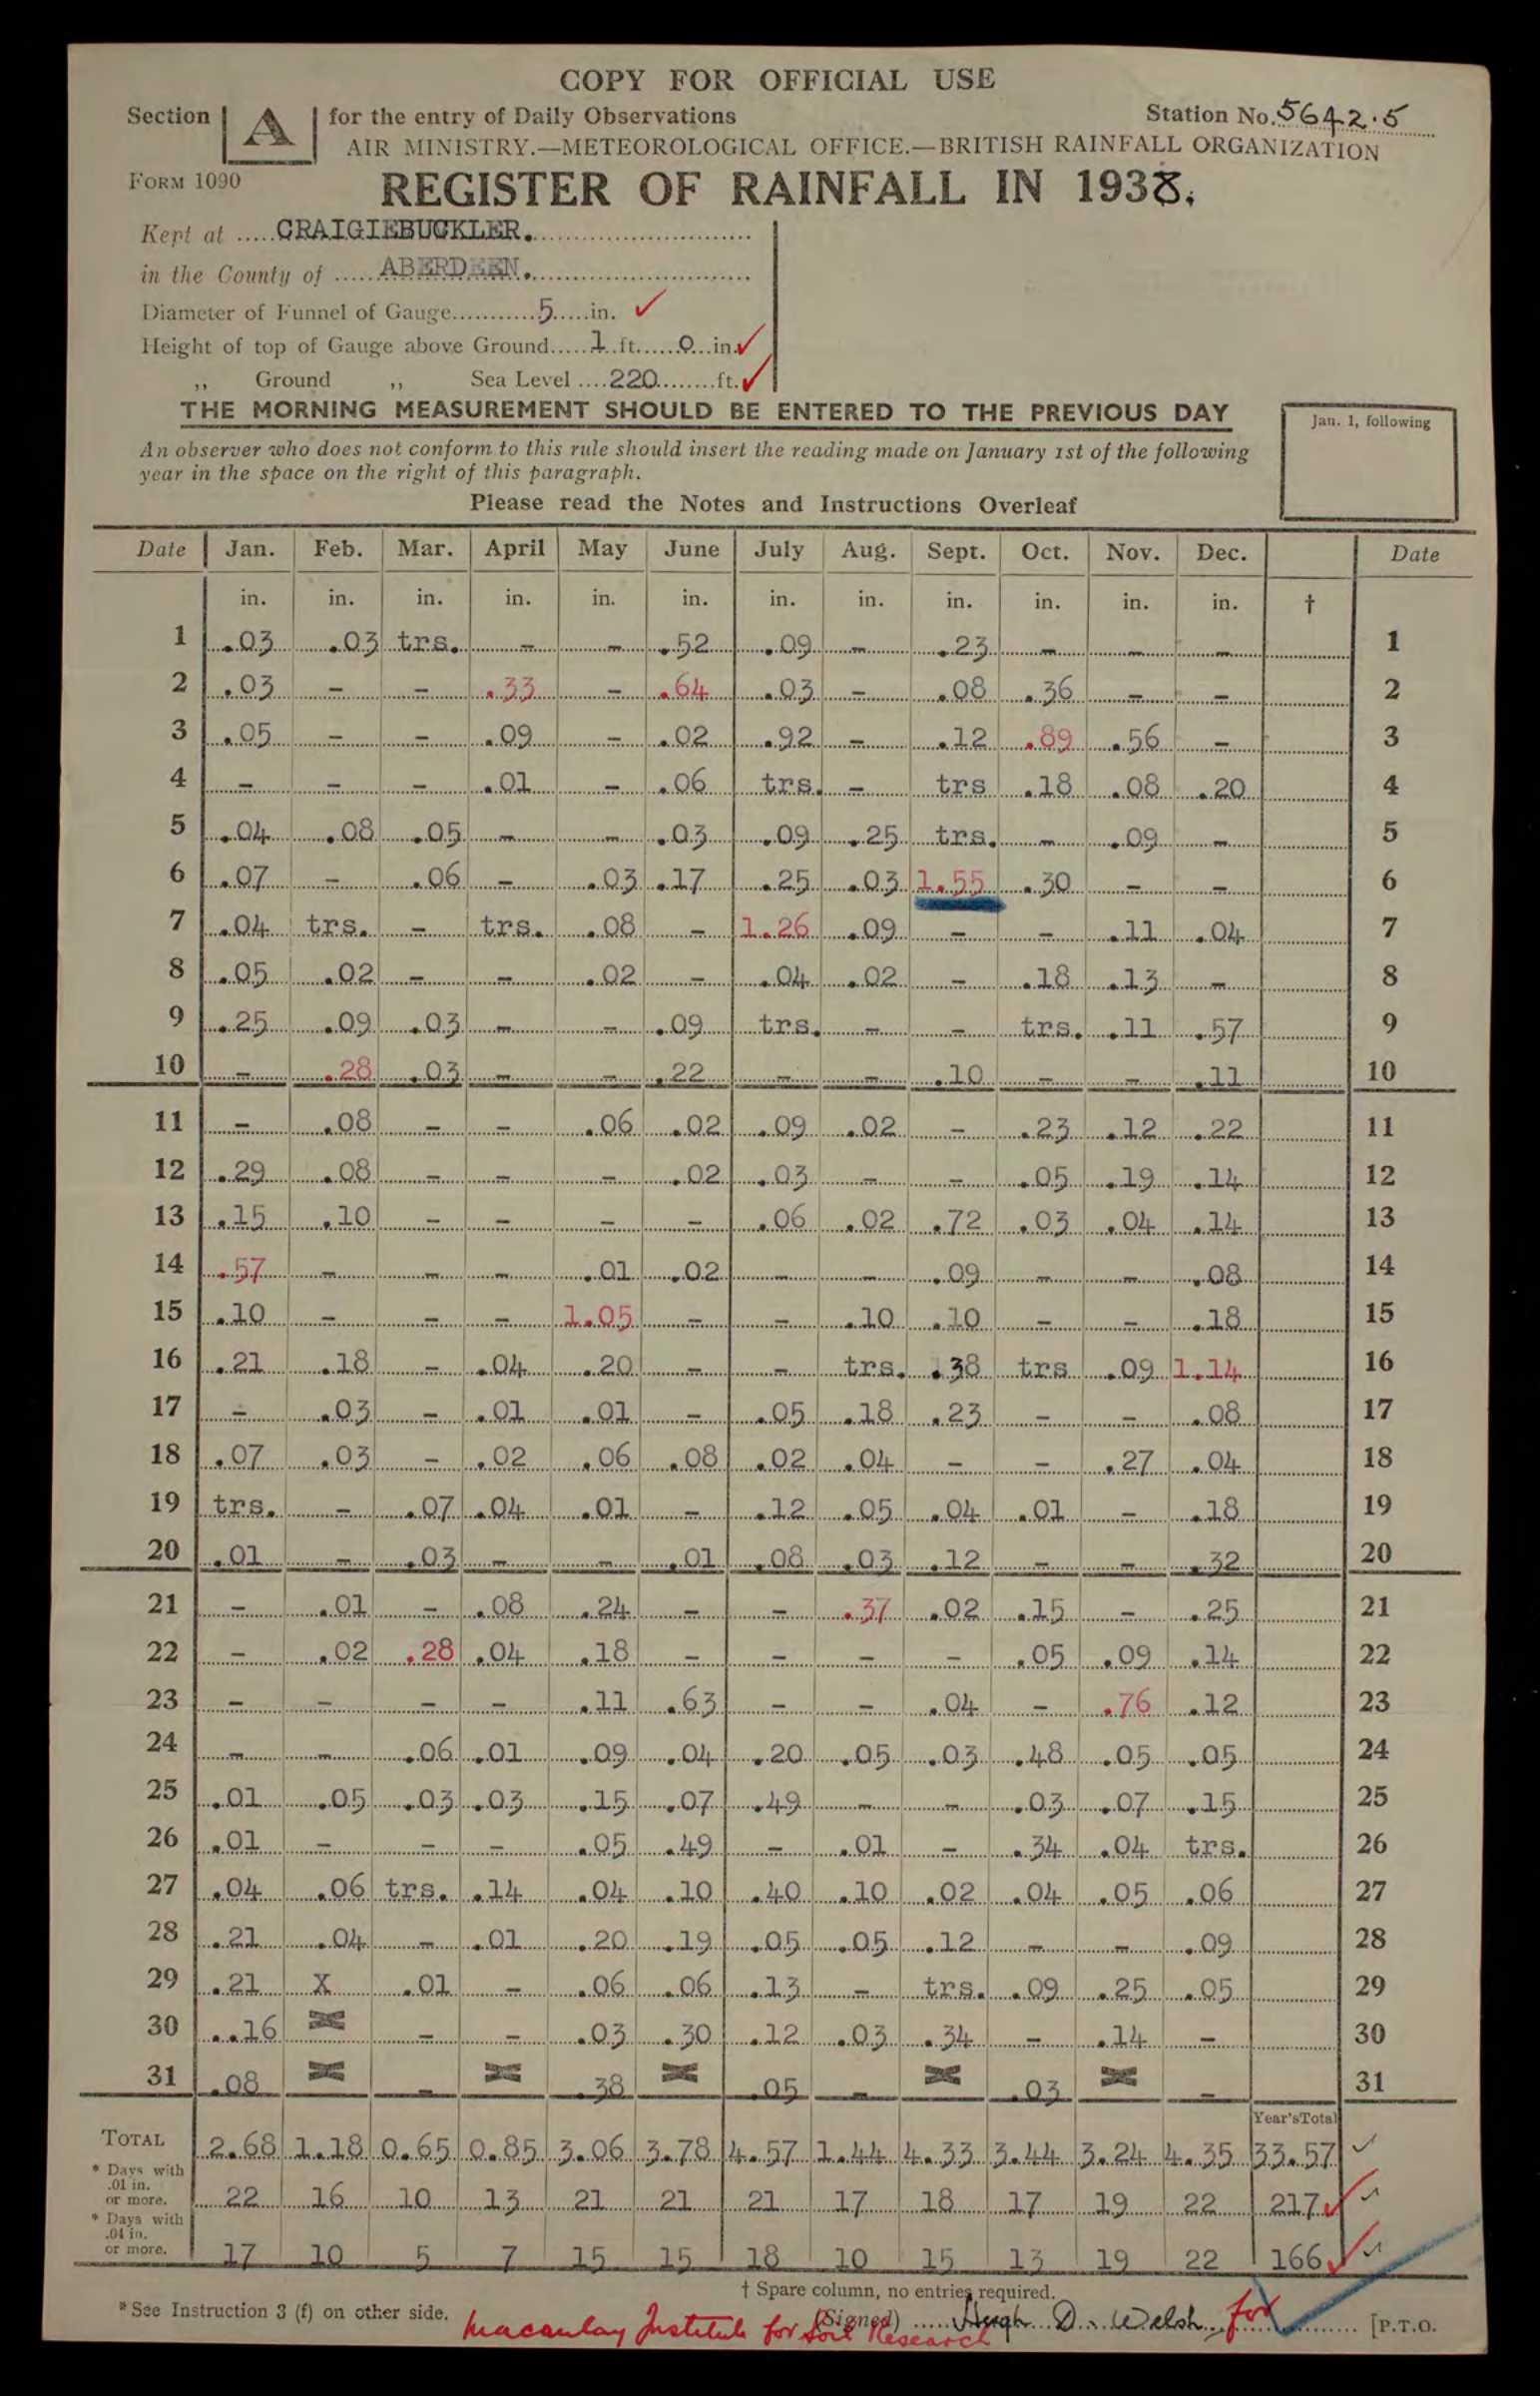 COPY FOR OFFICIAL USE
Section A for the entry of Daily Observations Station No. 5642.5
AIR MINISTRY.—METEOROLOGICAL OFFICE.—BRITISH RAINFALL ORGANIZATION
FORM 1090
REGISTER OF RAINFALL IN 1938.
Kept at CRAIGIEBUCKLER.
in the County of ABERDEEN.
Diameter of Funnel of Gauge 5 in. ✓
Height of top of Gauge above Ground 1 ft. 0 in. ✓
,, Ground ,, Sea Level 220 ft. ✓
THE MORNING MEASUREMENT SHOULD BE ENTERED TO THE PREVIOUS DAY
Jan. 1, following
An observer who does not conform to this rule should insert the reading made on January 1st of the following
year in the space on the right of this paragraph.
Please read the Notes and Instructions Overleaf
Date Jan. Feb. Mar. April May June July Aug. Sept. Oct. Nov. Dec. Date
in. in. in. in. in. in. in. in. in. in. in. in. †
1 .03 .03 trs. - - .52 .09 - .23 - - - 1
2 .03 - - .33 - .64 .03 - .08 .36 - - 2
3 .05 - - .09 - .02 .92 - .12 .89 .56 - 3
4 - - - .01 - .06 trs. - trs .18 .08 .20 4
5 .04 .08 .05 - - .03 .09 .25 trs. - .09 - 5
6 .07 - .06 - .03 .17 .25 .03 1.55 .30 - - 6
7 .04 trs. - trs. .08 - 1.26 .09 - - .11 .04 7
8 .05 .02 - - .02 - .04 .02 - .18 .13 - 8
9 .25 .09 .03 - - .09 trs. - - trs. .11 .57 9
10 - .28 .03 - - .22 - - .10 - - .11 10
11 - .08 - - .06 .02 .09 .02 - .23 .12 .22 11
12 .29 .08 - - - .02 .03 - - .05 .19 .14 12
13 .15 .10 - - - - .06 .02 .72 .03 .04 .14 13
14 .57 - - - .01 .02 - - .09 - - .08 14
15 .10 - - - 1.05 - - .10 .10 - - .18 15
16 .21 .18 - .04 .20 - - trs. .38 trs .09 1.14 16
17 - .03 - .01 .01 - .05 .18 .23 - - .08 17
18 .07 .03 - .02 .06 .08 .02 .04 - - .27 .04 18
19 trs. - .07 .04 .01 - .12 .05 .04 .01 - .18 19
20 .01 - .03 - - .01 .08 .03 .12 - - .32 20
21 - .01 - .08 .24 - - .37 .02 .15 - .25 21
22 - .02 .28 .04 .18 - - - - .05 .09 .14 22
23 - - - - .11 .63 - - .04 - .76 .12 23
24 - - .06 .01 .09 .04 .20 .05 .03 .48 .05 .05 24
25 .01 .05 .03 .03 .15 .07 .49 - - .03 .07 .15 25
26 .01 - - - .05 .49 - .01 - .34 .04 trs. 26
27 .04 .06 trs. .14 .04 .10 .40 .10 .02 .04 .05 .06 27
28 .21 .04 - .01 .20 .19 .05 .05 .12 - - .09 28
29 .21 X .01 - .06 .06 .13 - trs. .09 .25 .05 29
30 .16 - - .03 .30 .12 .03 .34 - .14 - 30
31 .08 - .38 .05 - .03 - 31
Year's Total
TOTAL 2.68 1.18 0.65 0.85 3.06 3.78 4.57 1.44 4.33 3.44 3.24 4.35 33.57 ✓
* Days with
.01 in.
or more. 22 16 10 13 21 21 21 17 18 17 19 22 217 ✓
* Days with
.04 in.
or more. 17 10 5 7 15 15 18 10 15 13 19 22 166 ✓
† Spare column, no entries required.
* See Instruction 3 (f) on other side. (Signed) Hugh D. Welsh for [P.T.O.
Macaulay Institute for Soil Research